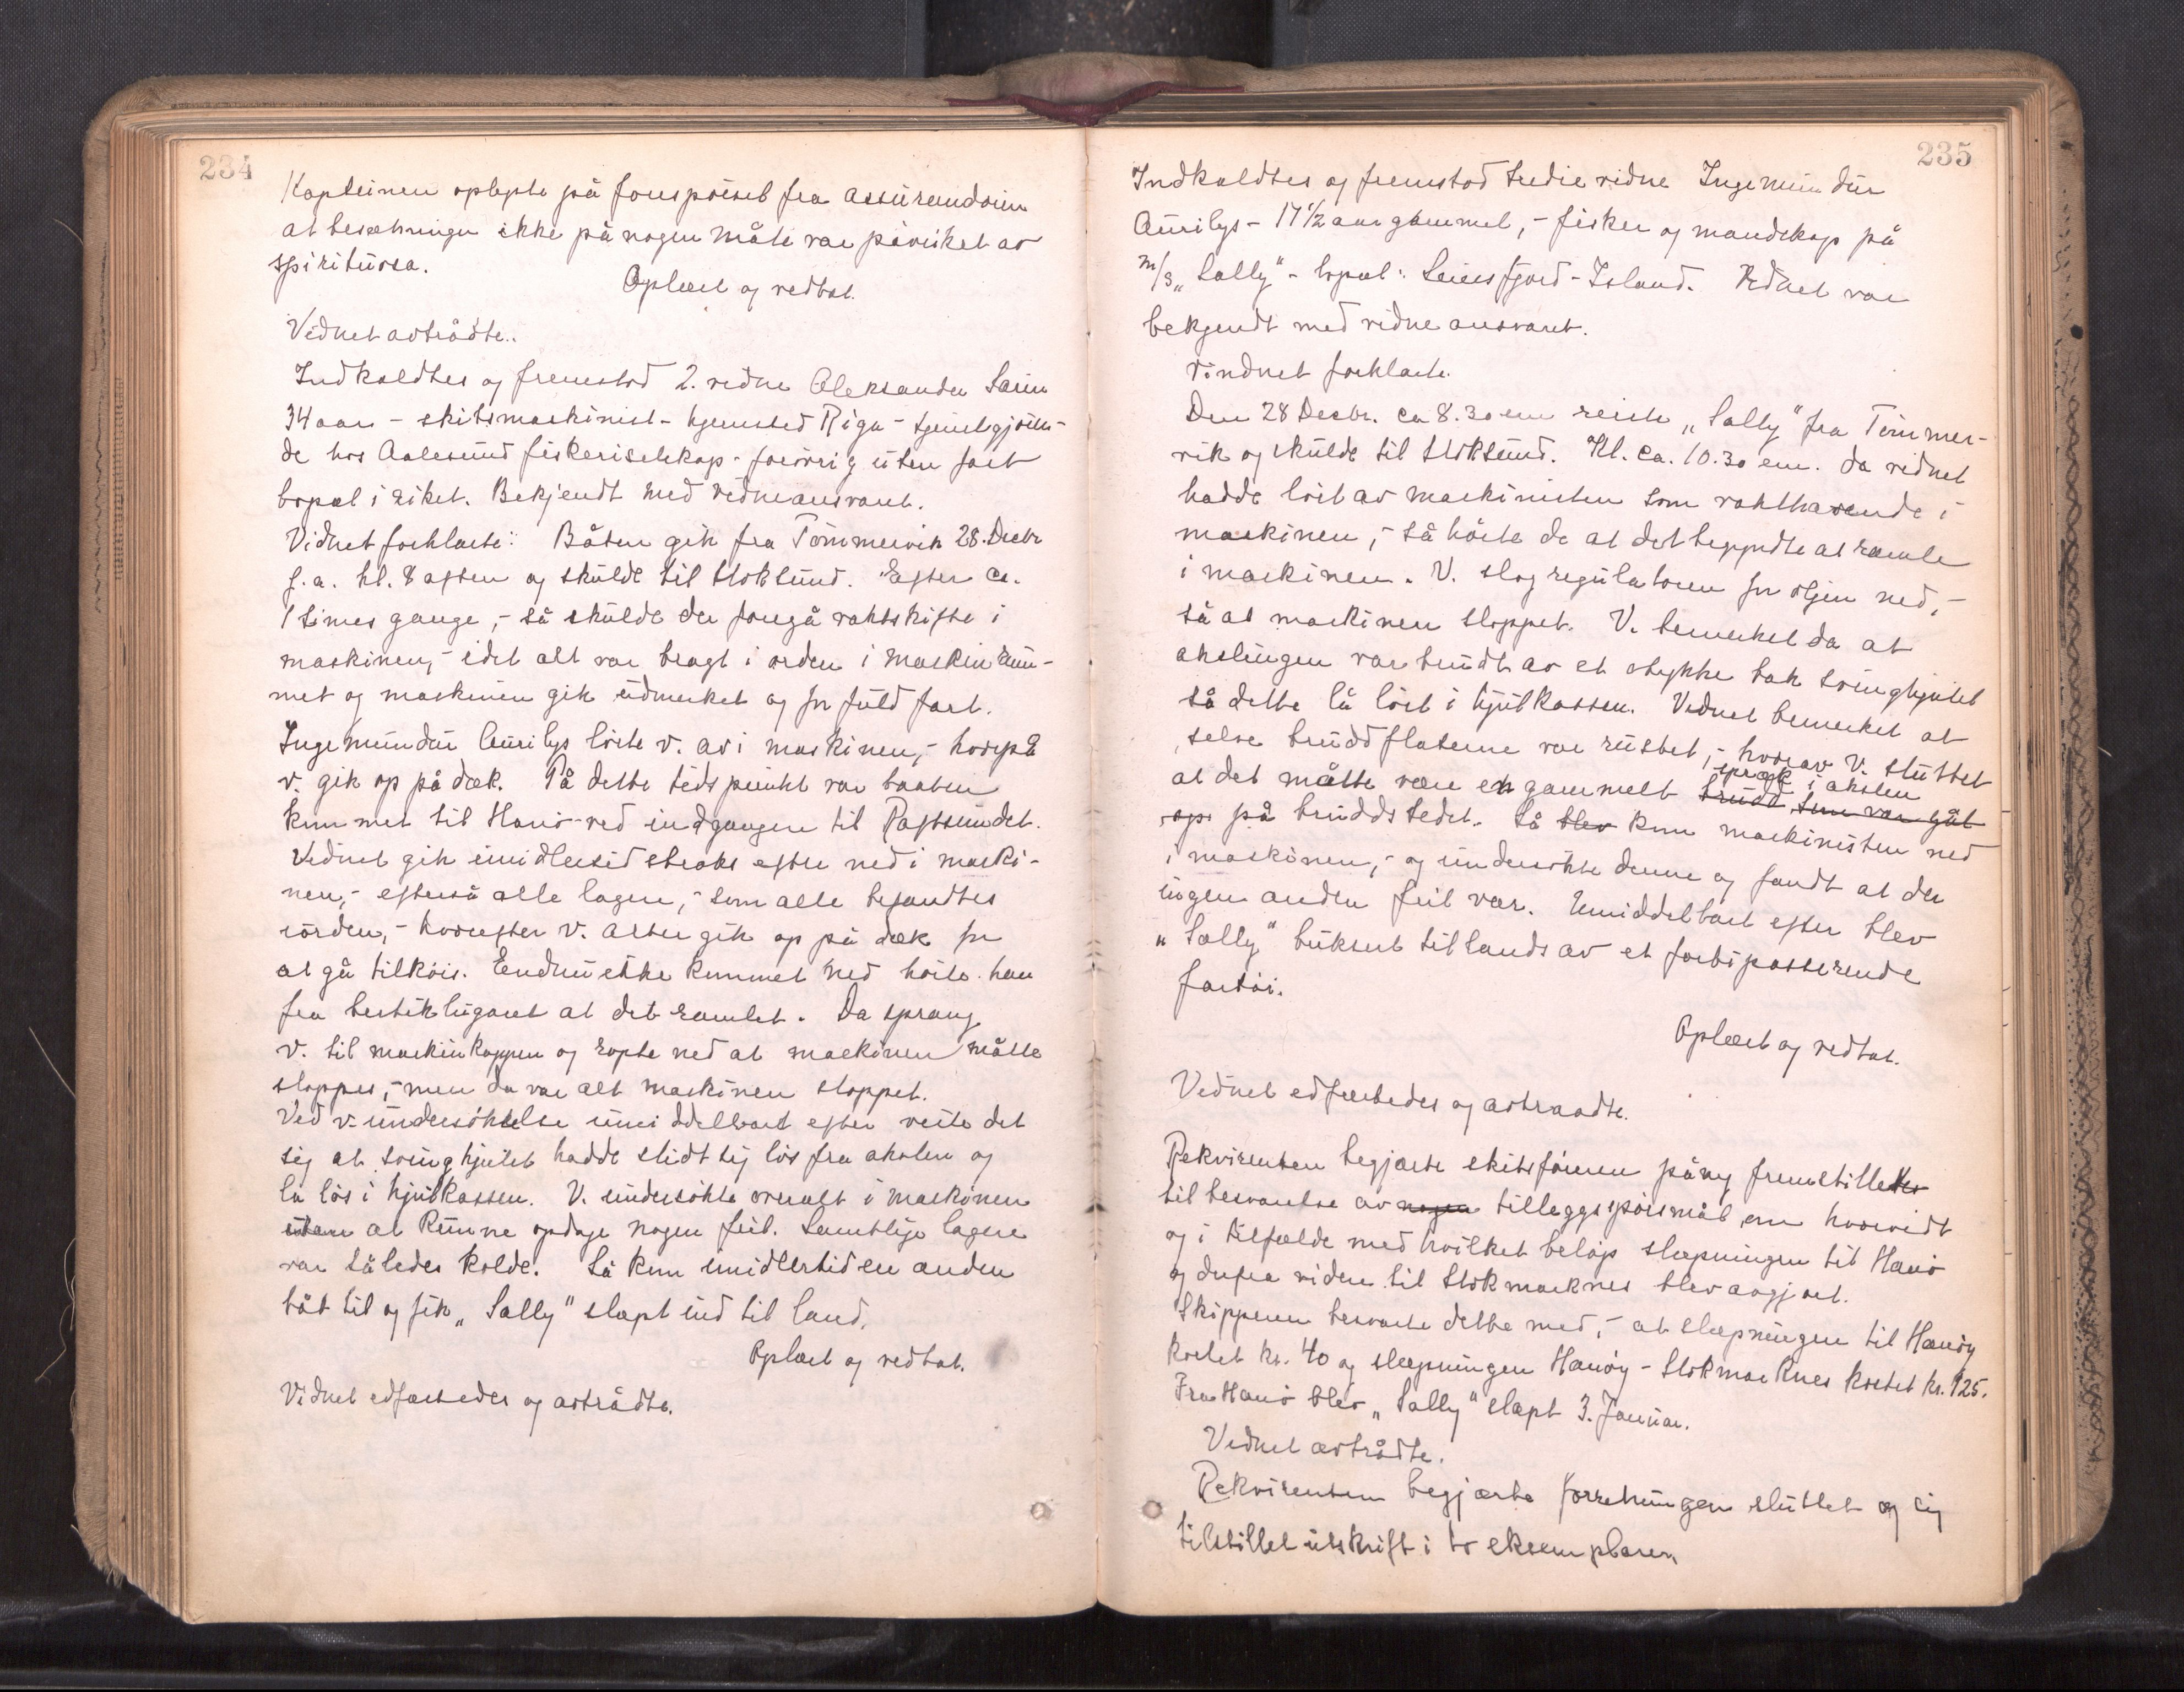 234
Kapteinen oplyste på forespörsel fra assurandören
at besætningen ikke på nogen måte var påvirket av
spirituosa.
Oplæst og vedtat.
Vidnet avtrådte.
Indkaldtes og fremstod 2. vidne Aleksander Sarin
34 aar - skibsmaskinist - hjemsted Riga - tjenestegjören-
de hos Aalesund fiskeriselskap - forövrig uten fast
bopæl i riket. Bekjendt med vidneansvaret.
Vidnet forklarte: Båten gik fra Tömmervik 28. Decbr
f.a. kl. 8 aften og skulde til Stoksund. Efter ca.
1 times gange, - så skulde der foregå vaktskifte i
maskinen, - idet alt var bragt i orden i maskinrum-
met og maskinen gik udmerket og for fuld fart.
Ingemundur Aurilys löste v. av i maskinen, - hvorpå
v. gik op på dæk. På dette tidspunkt var baaten
kommet til Hanö ved indgangen til Raftsundet.
Vidnet gik imidlertid straks efter ned i maski-
nen, - efterså alle lagere, - som alle befandtes
iorden, - hvorefter v. atter gik op på dæk for
at gå tilköis. Endnu ikke kommet ned hörte han
fra bestiklugaret at det ramlet. Da sprang
v. til maskinkappen og ropte ned at maskinen måtte
stoppes, - men da var alt maskinen stoppet.
Ved v. undersökelse umiddelbart efter viste det
sig at svinghjulet hadde slidt sig lös fra akslen og
lå lös i hjulkassen. V. undersökte overalt i maskinen
uten at kunne opdage nogen feil. Samtlige lagere
var således kolde. Så kom imidlertid en anden
båt til og fik „Sally" slæpt ind til land.
Oplæst og vedtat.
Vidnet edfæstedes og avtrådte.
235
Indkaldtes og fremstod tredie vidne Ingemundur
Aurilys - 17 1/2 aar gammel, - fisker og mandskap på
m/s „Sally" - bopæl: Seiersfjord - Island. Vidnet var
bekjendt med vidneansvaret.
Vindnet forklarte.
Den 28 Decbr. ca 8.30 em reiste „Sally" fra Tömmer-
vik og skulde til Stoksund. Kl. ca. 10.30 em. da vidnet
hadde löst av maskinisten som vakthavende i
maskinen, - så hörte de at det begyndte at ramle
i maskinen. V. slog regulatoren for oljen ned, -
så at maskinen stoppet. V. bemerket da at
akslingen var brudt av et stykke bak svinghjulet
så dette lå löst i hjulkassen. Vidnet bemerket at
selve bruddflaterne var rustet, - hvorav v. sluttet
spræk i akslen
at det måtte være en gammelt brudd som var gåt
op på bruddstedet. Så blev kom maskinisten ned
i maskinen, - og undersökte denne og fandt at der
ingen anden feil var. Umiddelbart efter blev
„Sally" bukseret tillands av et forbipasserende
fartöi.
Oplæst og vedtat.
Vidnet edfæstedes og avtraadte.
Rekvirenten begjærte skibsföreren påny fremstilledes
til besvarelse av nogen tilleggsspörsmål om hvorvidt
og i tilfælde med hvilket belöp slæpningen til Hanö
og derfra videre til Stokmarknes blev avgjort.
Skipperen besvarte dette med, - at slæpningen til Hanöy
kostet kr. 40 og slæpningen Hanöy - Stokmarknes kostet kr. 125.
Fra Hanö blev „Sally" slæpt 3. Januar.
Vidnet avtrådte.
Rekvirenten begjærte forretningen sluttet og sig
tilstillet utskrift i to eksemplarer.